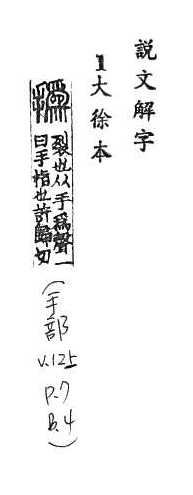 說文解字
1大徐本
撝 裂也从手爲聲一
曰手指也許歸切
(手部
v.125
p.7
B.4)